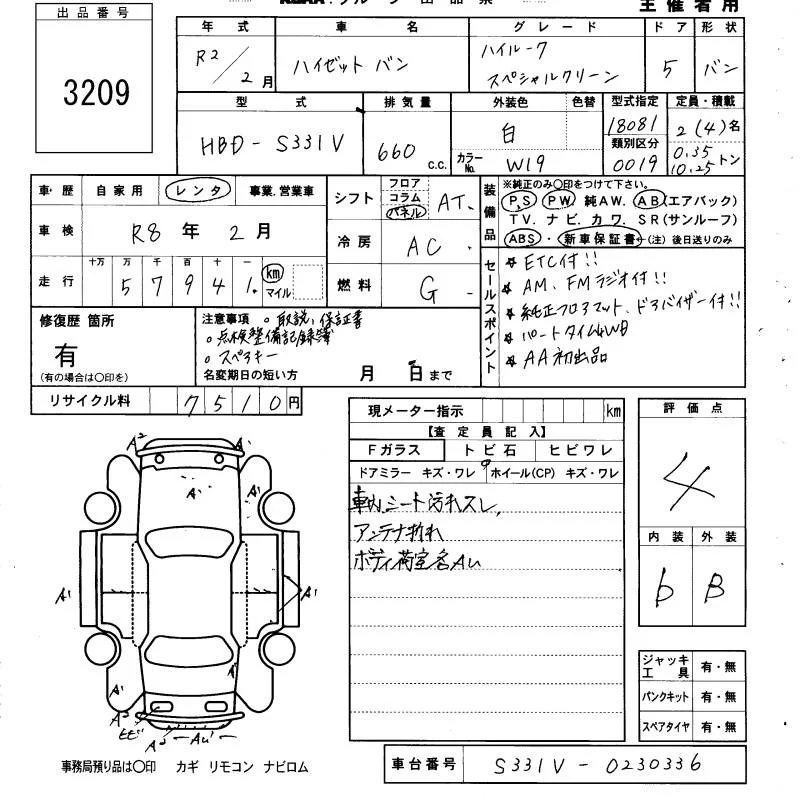 主催者用
出品番号
3209
年式 車名 グレード ドア 形状
R2/2月 ハイゼット バン ハイルーフ スペシャルクリーン 5 バン
型式 排気量 外装色 色替 型式指定 定員・積載
HBD-S331V 660 c.c. 白 カラーNo. W19 18081 類別区分 0019 2(4)名 0.35 0.25トン
車・歴 自家用 レンタ 事業.営業車
シフト フロア コラム パネル AT
車検 R8年2月
冷房 AC
走行 十万 万 千 百 十 一
57941 km マイル
燃料 G
装備品 ※純正のみ○印をつけて下さい。
P,S PW 純AW. AB(エアバック)
TV. ナビ. カワ. SR(サンルーフ)
ABS・新車保証書←(注) 後日送りのみ
セールスポイント
ETC付!!
AM、FMラジオ付!!
純正フロアマット、ドアバイザー付!!
パートタイム4WD
AA初出品
修復歴 箇所
有
(有の場合は○印を)
注意事項 取説、保証書
点検整備記録簿
スペアキー
名変期日の短い方 月 日まで
リサイクル料 7510円
現メーター指示 km
【査定員記入】
Fガラス トビ石 ヒビワレ
ドアミラー キズ・ワレ ホイール(CP) キズ・ワレ
車内、シート汚れスレ、
アンテナ折れ
ボディ荷室各AU
評価点
4
内装 外装
b B
ジャッキ工具 有・無
パンクキット 有・無
スペアタイヤ 有・無
A² A¹
A¹
A¹ A¹
A¹
A¹
A²
ヒビ
A² AU¹
事務局預り品は○印 カギ リモコン ナビロム
車台番号 S331V-0230336